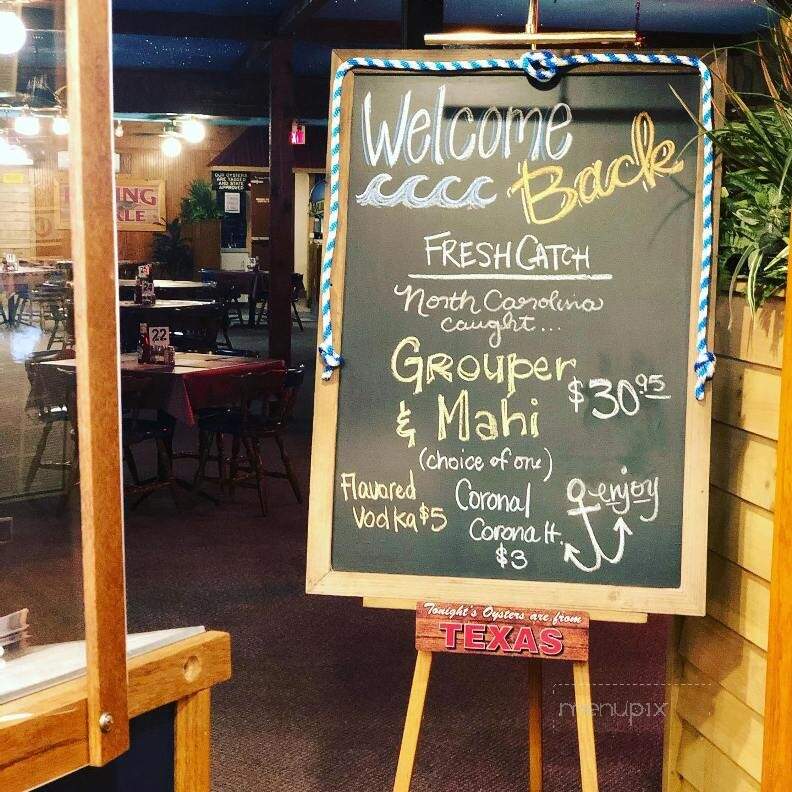 Welcome
Back
FRESH CATCH
North Carolina
caught...
Grouper
& Mahi
$30.95
(choice of one)
Flavored
Vodka $5
Coronal
Corona lt.
$3
enjoy
Tonight's Oysters are from
TEXAS
OUR OYSTERS
ARE TAGGED
AND STATE
APPROVED
ING
LE
22
menupix